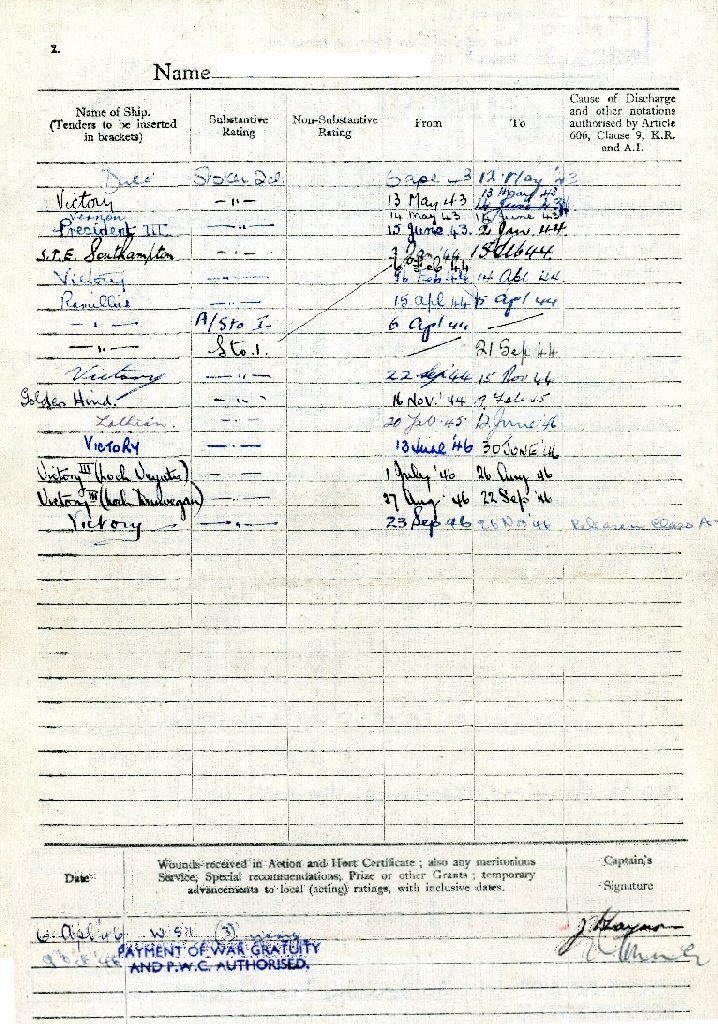 2.
Name
Name of Ship. (Tenders to be inserted in brackets)
Substantive Rating
Non-Substantive Rating
From
To
Cause of Discharge and other notations authorised by Article 606, Clause 9, K.R. and A.I.
Duke Stoker 2cl 6 Apl 43 12 May '43
Victory — " — 13 May 43 13 May 43
Vernon 14 May 43 14 June 43
President III — " — 15 June 43 2 Jan. 44
S.T.E. Southampton — " — 3 Jan '44 15 Feb 44
16 Feb 44
Victory — " — 16 Feb 44 14 Apl 44
Ramillies — " — 15 Apl 44 5 Apl 44
— " — A/Sto I. 6 Apl 44
— " — Sto. 1. 21 Sep 44
Victory — " — 22 Sep 44 15 Nov 44
Golden Hind. — " — 16 Nov. '44 9 Feb 45
Lothian. — " — 20 Feb. 45 12 June '46
VICTORY — " — 13 June '46 30 JUNE '46
Victory III (Loch ) 1 July '46 26 Aug 46
Victory III (Loch Dunvegan) 27 Aug. 46 22 Sep '46
Victory — " — 23 Sep 46 26 Nov '46 Released Class A
Date
Wounds received in Action and Hurt Certificate; also any meritorious Service, Special recommendations, Prize or other Grants; temporary advancements to local (acting) ratings, with inclusive dates.
Captain's Signature
6 Apl '46 (3)
PAYMENT OF WAR GRATUITY
AND P.W.C. AUTHORISED.